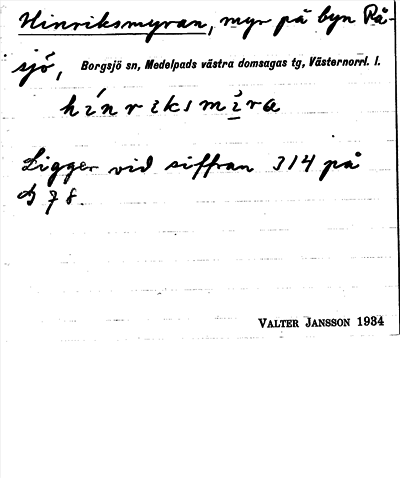 Hinriksmyran, myr på byn Rå-
sjö, Borgsjö sn, Medelpads västra domsagas tg, Västernorrl. l.
hínriksmìra
Ligger vid siffran 314 på
78.
VALTER JANSSON 1934